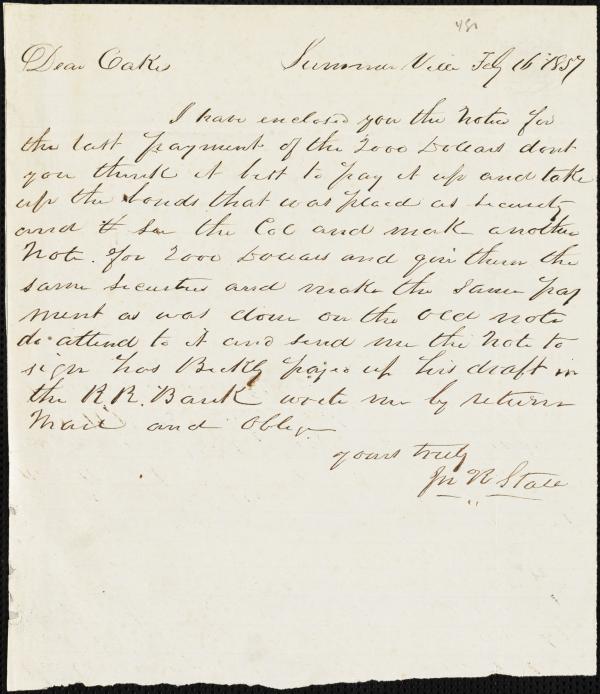 451
Dear Oakes Summer Ville Feby 16th 1857
I have enclosed you the Note for
the last payment of the 2000 Dollars dont
you think it best to pay it up and take
up the bonds that was placed as security
and see the Col and make another
Note for 2000 Dollars and give them the
same Securities and make the same pay
ment as was done on the Old note
do attend to it and send me the Note to
sign has Beckly payed up his draft in
the R.R. Bank write me by return
Mail and Oblige
yours truly
Jn R State